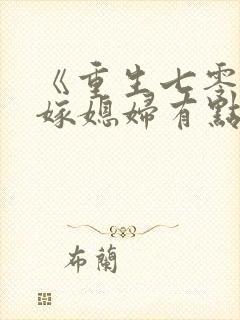 《重生七零
嫁媳婦有點
布蘭